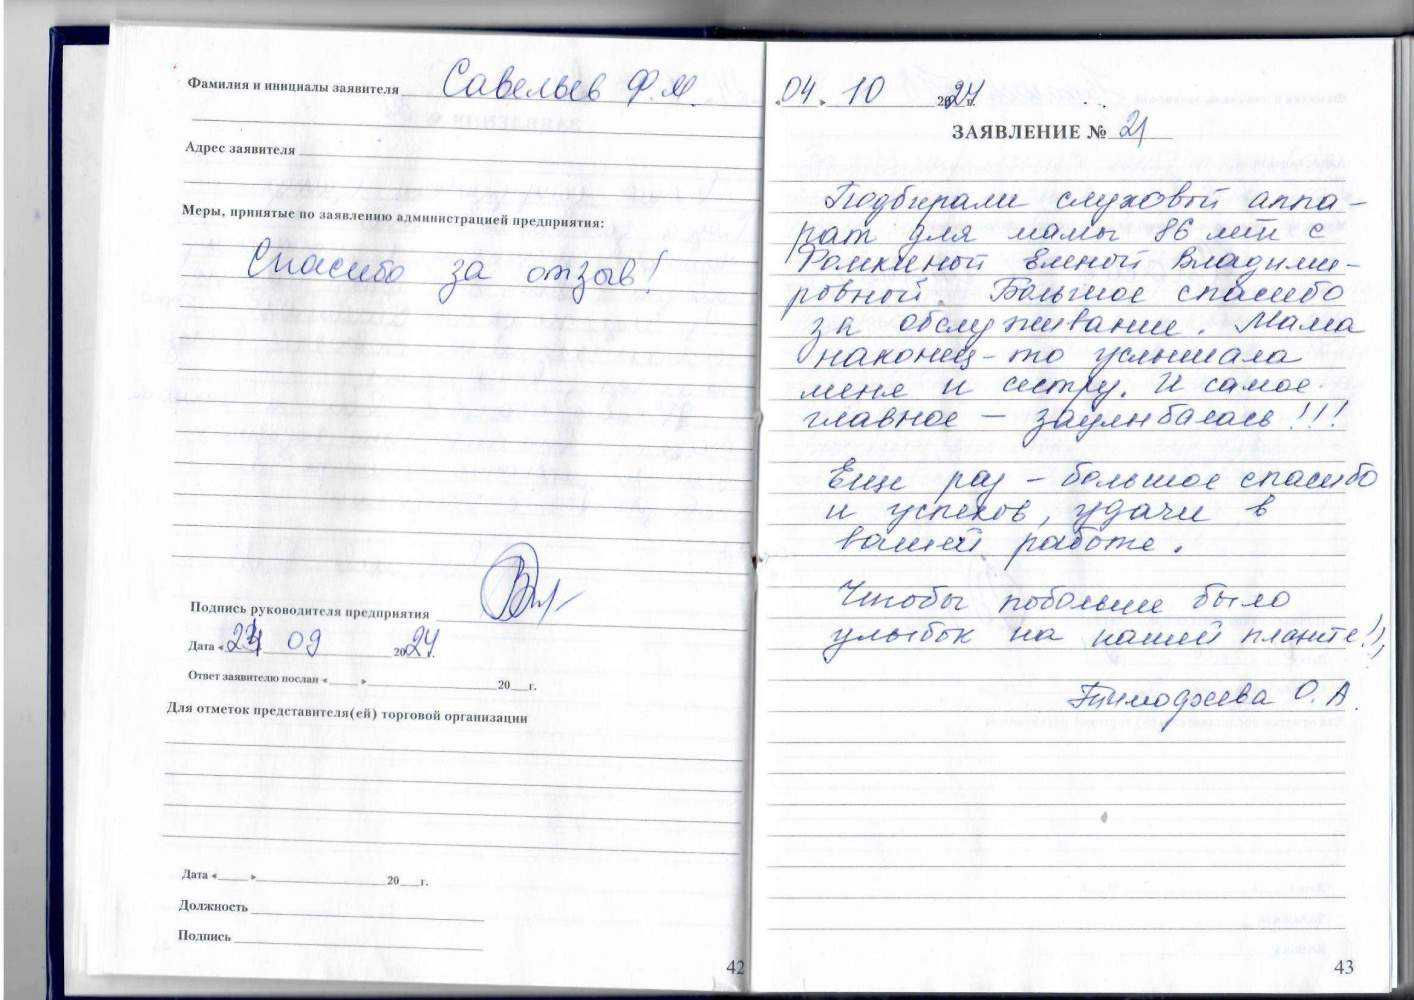 Фамилия и инициалы заявителя Савельев Ф.М.
Адрес заявителя
Меры, принятые по заявлению администрацией предприятия:
Спасибо за отзыв!
Подпись руководителя предприятия
Дата « 09 2024 г.
Ответ заявителю послан « » 20 г.
Для отметок представителя(ей) торговой организации
Дата « » 20 г.
Должность
Подпись
42
«04» 10 2024 г.
ЗАЯВЛЕНИЕ № 21
Подбирали слуховой аппа-
рат для мамы 86 лет с
Фомкиной Еленой Владими-
ровной. Большое спасибо
за обслуживание. Мама
наконец-то услышала
меня и сестру. И самое
главное – заулыбалась!!!
Еще раз – большое спасибо
и успехов, удачи в
вашей работе.
Чтобы побольше было
улыбок на нашей планете!!!
О. А.
43